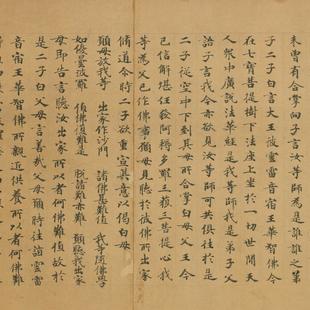 未曾有合掌向子言汝等師為是誰誰之弟
子二子白言大王彼雲雷音宿王華智佛今
在七寶菩提樹下法座上坐於一切世間天
人眾中廣說法華經是我等師我是弟子父
語子言我今亦欲見汝等師可共俱往於是
二子從空中下到其母所合掌白母父王今
已信解堪任發阿耨多羅三藐三菩提心我
等為父已作佛事願母見聽於彼佛所出家
修道尒時二子欲重宣其意以偈白母
願母放我等 出家作沙門 諸佛甚難值 我等隨佛學
如優曇波羅 值佛復難是 脫諸難亦難 願聽我出家
母即告言聽汝出家所以者何佛難值故於
是二子白父母言善哉父母願時往詣雲雷
音宿王華智佛所親近供養所以者何佛難